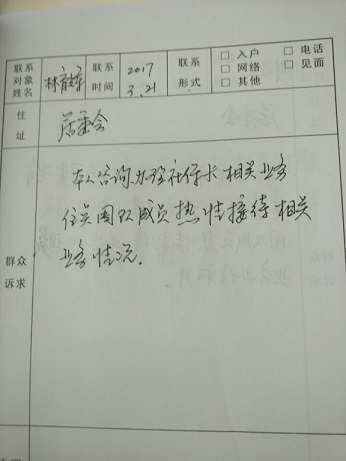 联系对象姓名 林 联系时间 2017 3.21 联系形式 □ 入户 □ 电话 □ 网络 □ 见面 □ 其他
住址 居委会
群众诉求
本人咨询办理社保卡相关业务
住吴团队成员热情接待相关
业务情况.